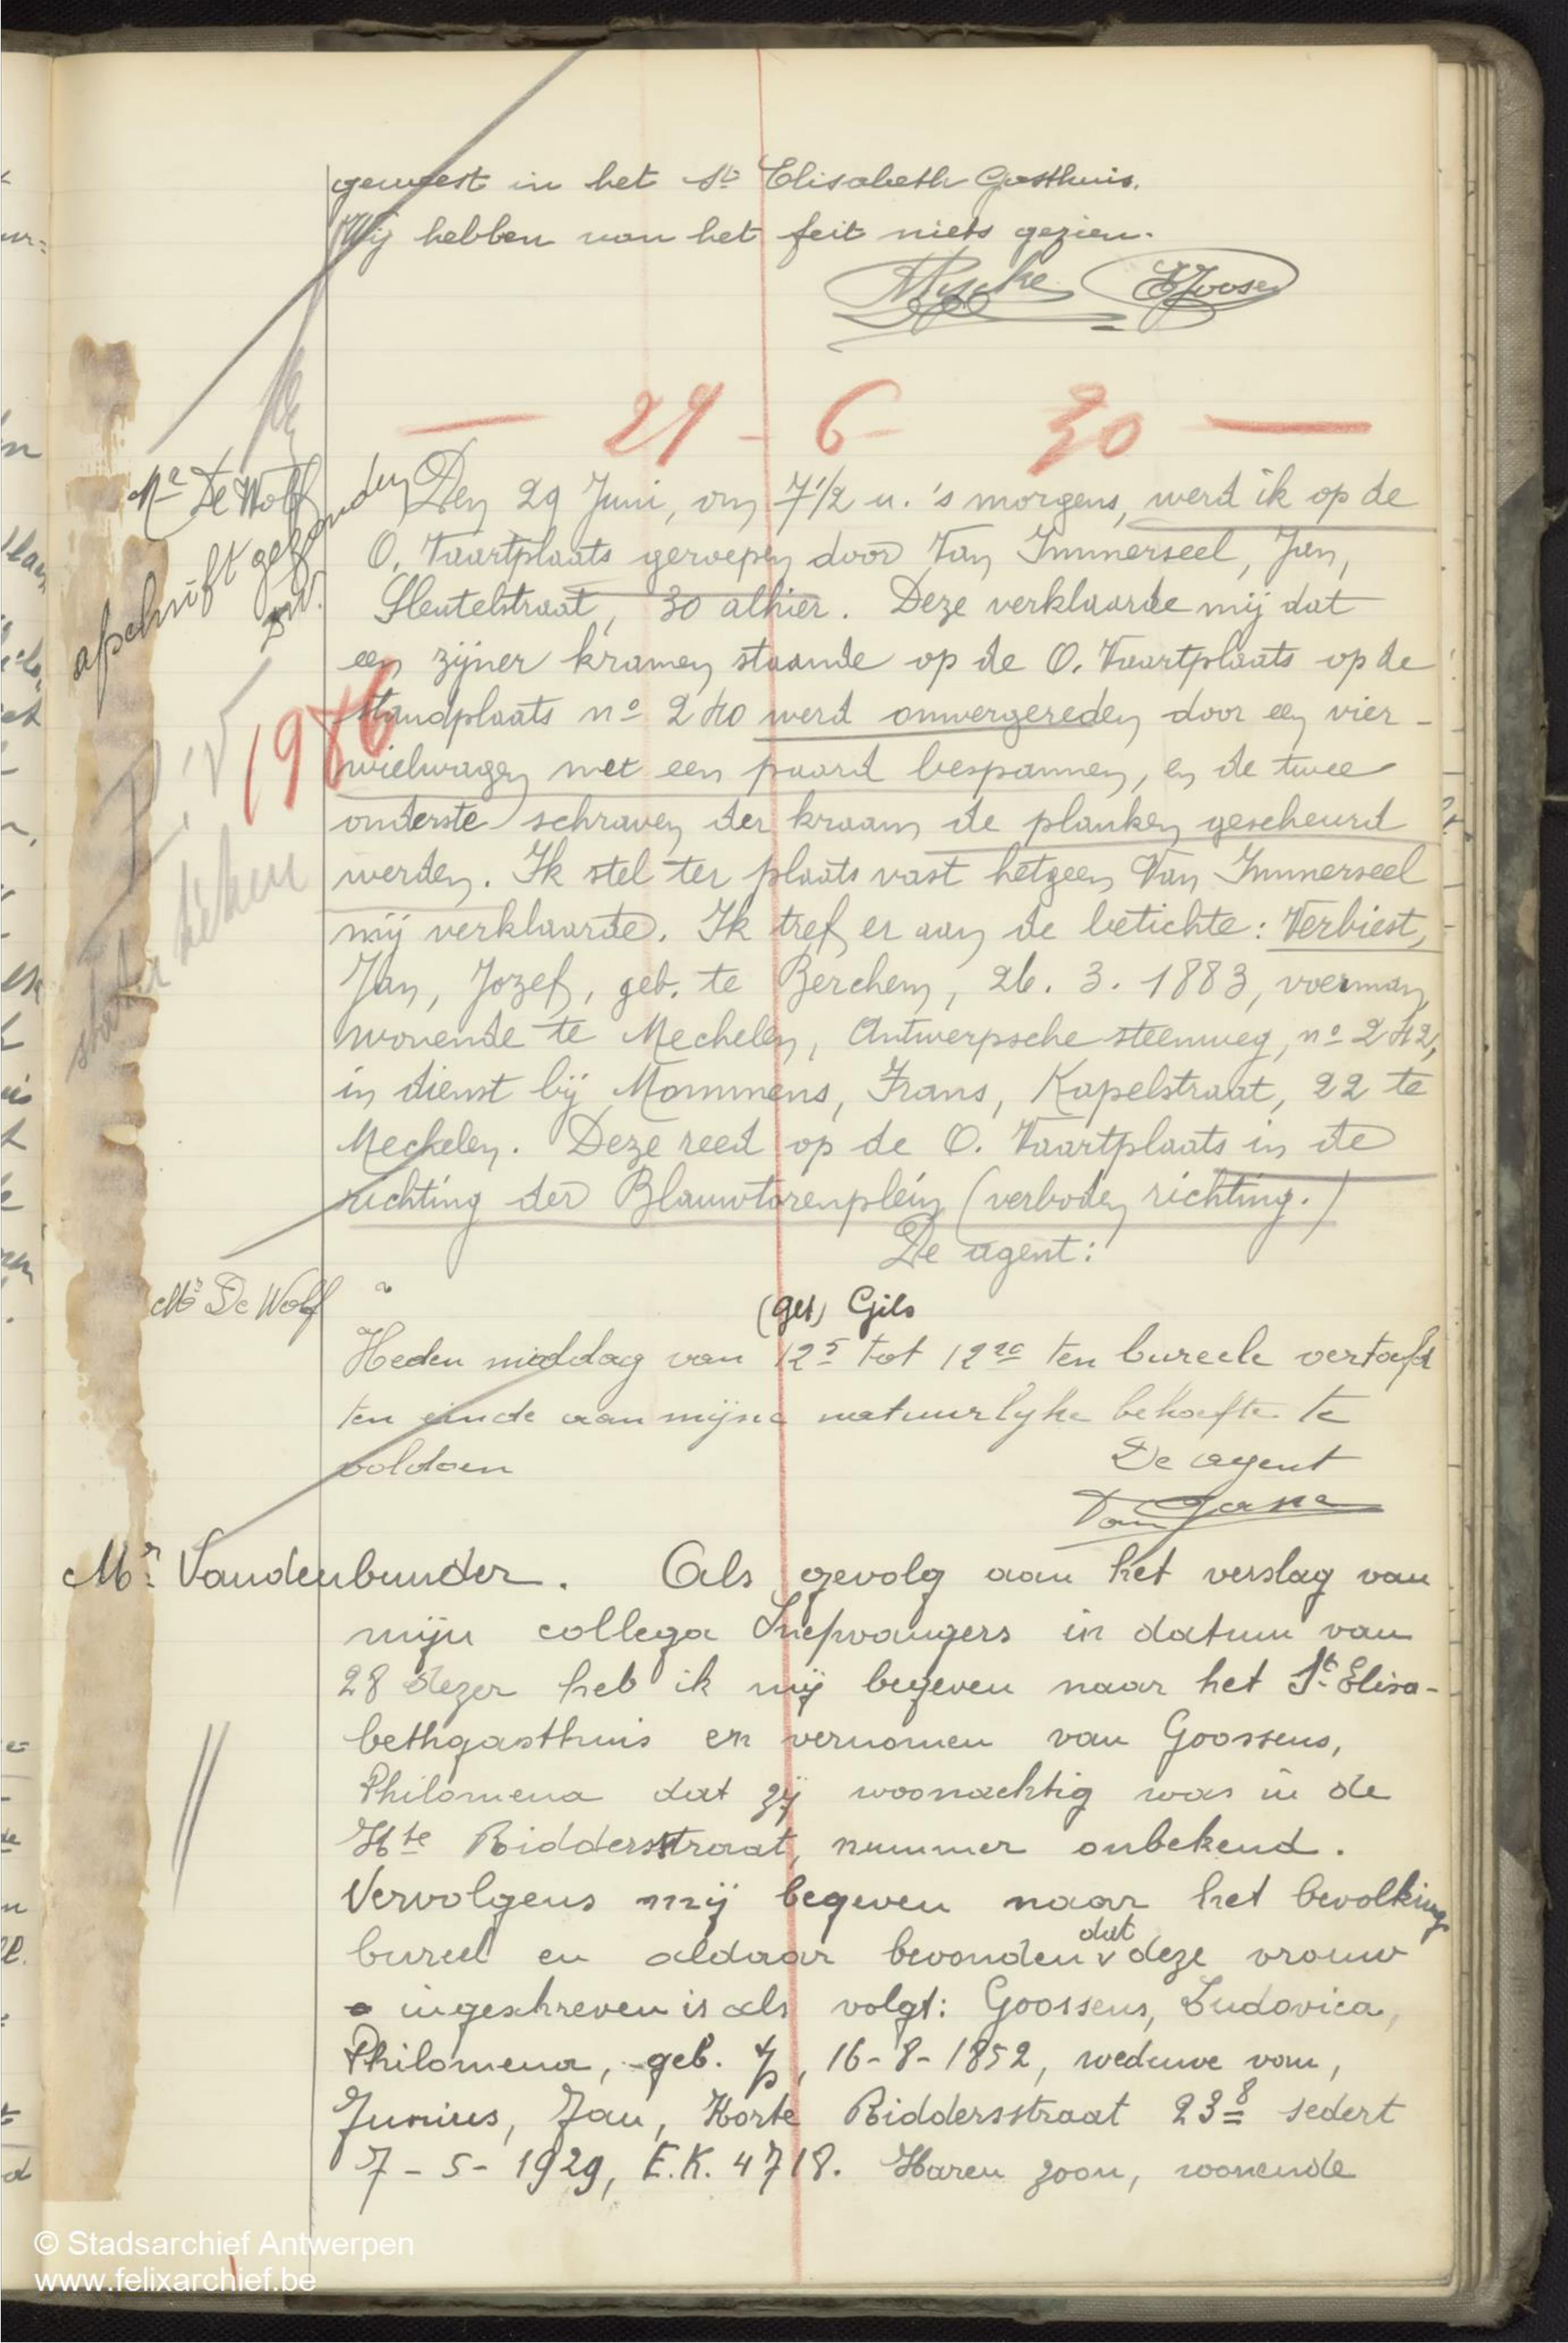 geweest in het St Elisabeth Gasthuis.
Wij hebben van het feit niets gezien.
KJoosen
— 29 - 6 - 30 —
Mr De Wolf
afschrift gezonden
Den 29 Juni, om 7 1/2 u. 's morgens, werd ik op de
O. Vaartplaats geroepen door Van Immerseel, Jan,
Sleutelstraat, 30 alhier. Deze verklaarde mij dat
een zijner kramen staande op de O. Vaartplaats op de
standplaats no 240 werd omvergereden door een vier-
1986
wielwagen met een paard bespannen, en de twee
onderste schraven der kraam de planken gescheurd
werden. Ik stel ter plaats vast hetgeen Van Immerseel
mij verklaarde. Ik tref er aan de betichte: Verbiest,
Jan, Jozef, geb. te Berchem, 26. 3. 1883, voerman,
wonende te Mechelen, Antwerpsche steenweg, no 242,
in dienst bij Mommens, Frans, Kapelstraat, 22 te
Mechelen. Deze reed op de O. Vaartplaats in de
richting der Blauwtorenplein (verboden richting.)
De agent:
(get) Gils
Mr De Wolf
Heden middag van 12 5 tot 12 20 ten bureele vertoefd
ten einde aan mijne natuurlijke behoefte te
voldoen
De agent
Mr Vandenbunder. Als gevolg aan het verslag van
mijn collega Snepvangers in datum van
28 dezer heb ik mij begeven naar het St Elisa-
bethgasthuis en vernomen van Goossens,
Philomena dat zij woonachtig was in de
Kte Ridderstraat, nummer onbekend.
Vervolgens mij begeven naar het bevolking
bureel en aldaar bevonden dat deze vrouw
ingeschreven is als volgt: Goossens, Ludovica,
Philomena, geb. 16-8-1852, weduwe van,
Junius, Jan, Korte Riddersstraat 23 8 sedert
7-5-1929, E.K. 4718. Haren zoon, woonende
© Stadsarchief Antwerpen
www.felixarchief.be